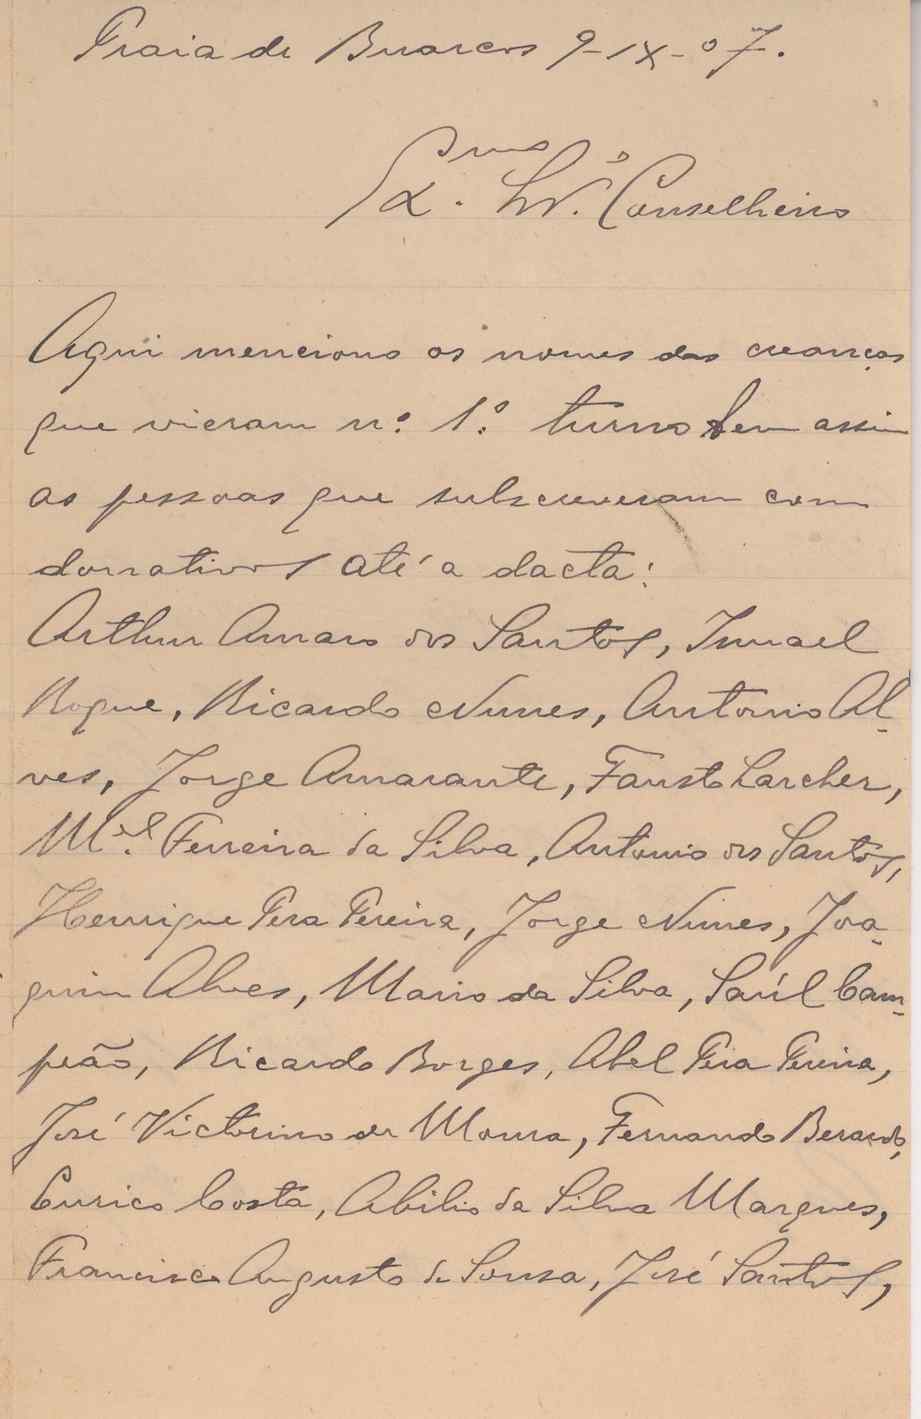 Praia de Buarcos 9-IX-07.
Ex.mo Snr. Conselheiro
Aqui menciono os nomes das creanças
que vieram n.º 1.º turno bem assim
as pessoas que subscreveram com
donnativos até a dacta:
Arthur Amaro dos Santos, Ismael
Roque, Ricardo Nunes, Antonio Al-
ves, Jorge Amarante, Fausto Larcher,
M.el Ferreira da Silva, Antonio dos Santos,
Henrique Pera Pereira, Jorge Nunes, Joa-
quim Alves, Mario da Silva, Saúl Cam-
peão, Ricardo Borges, Abel Pera Pereira,
José Victorino de Moura, Fernando Berardo,
Eurico Costa, Abilio da Silva Marques,
Francisco Augusto de Sousa, José Santos,